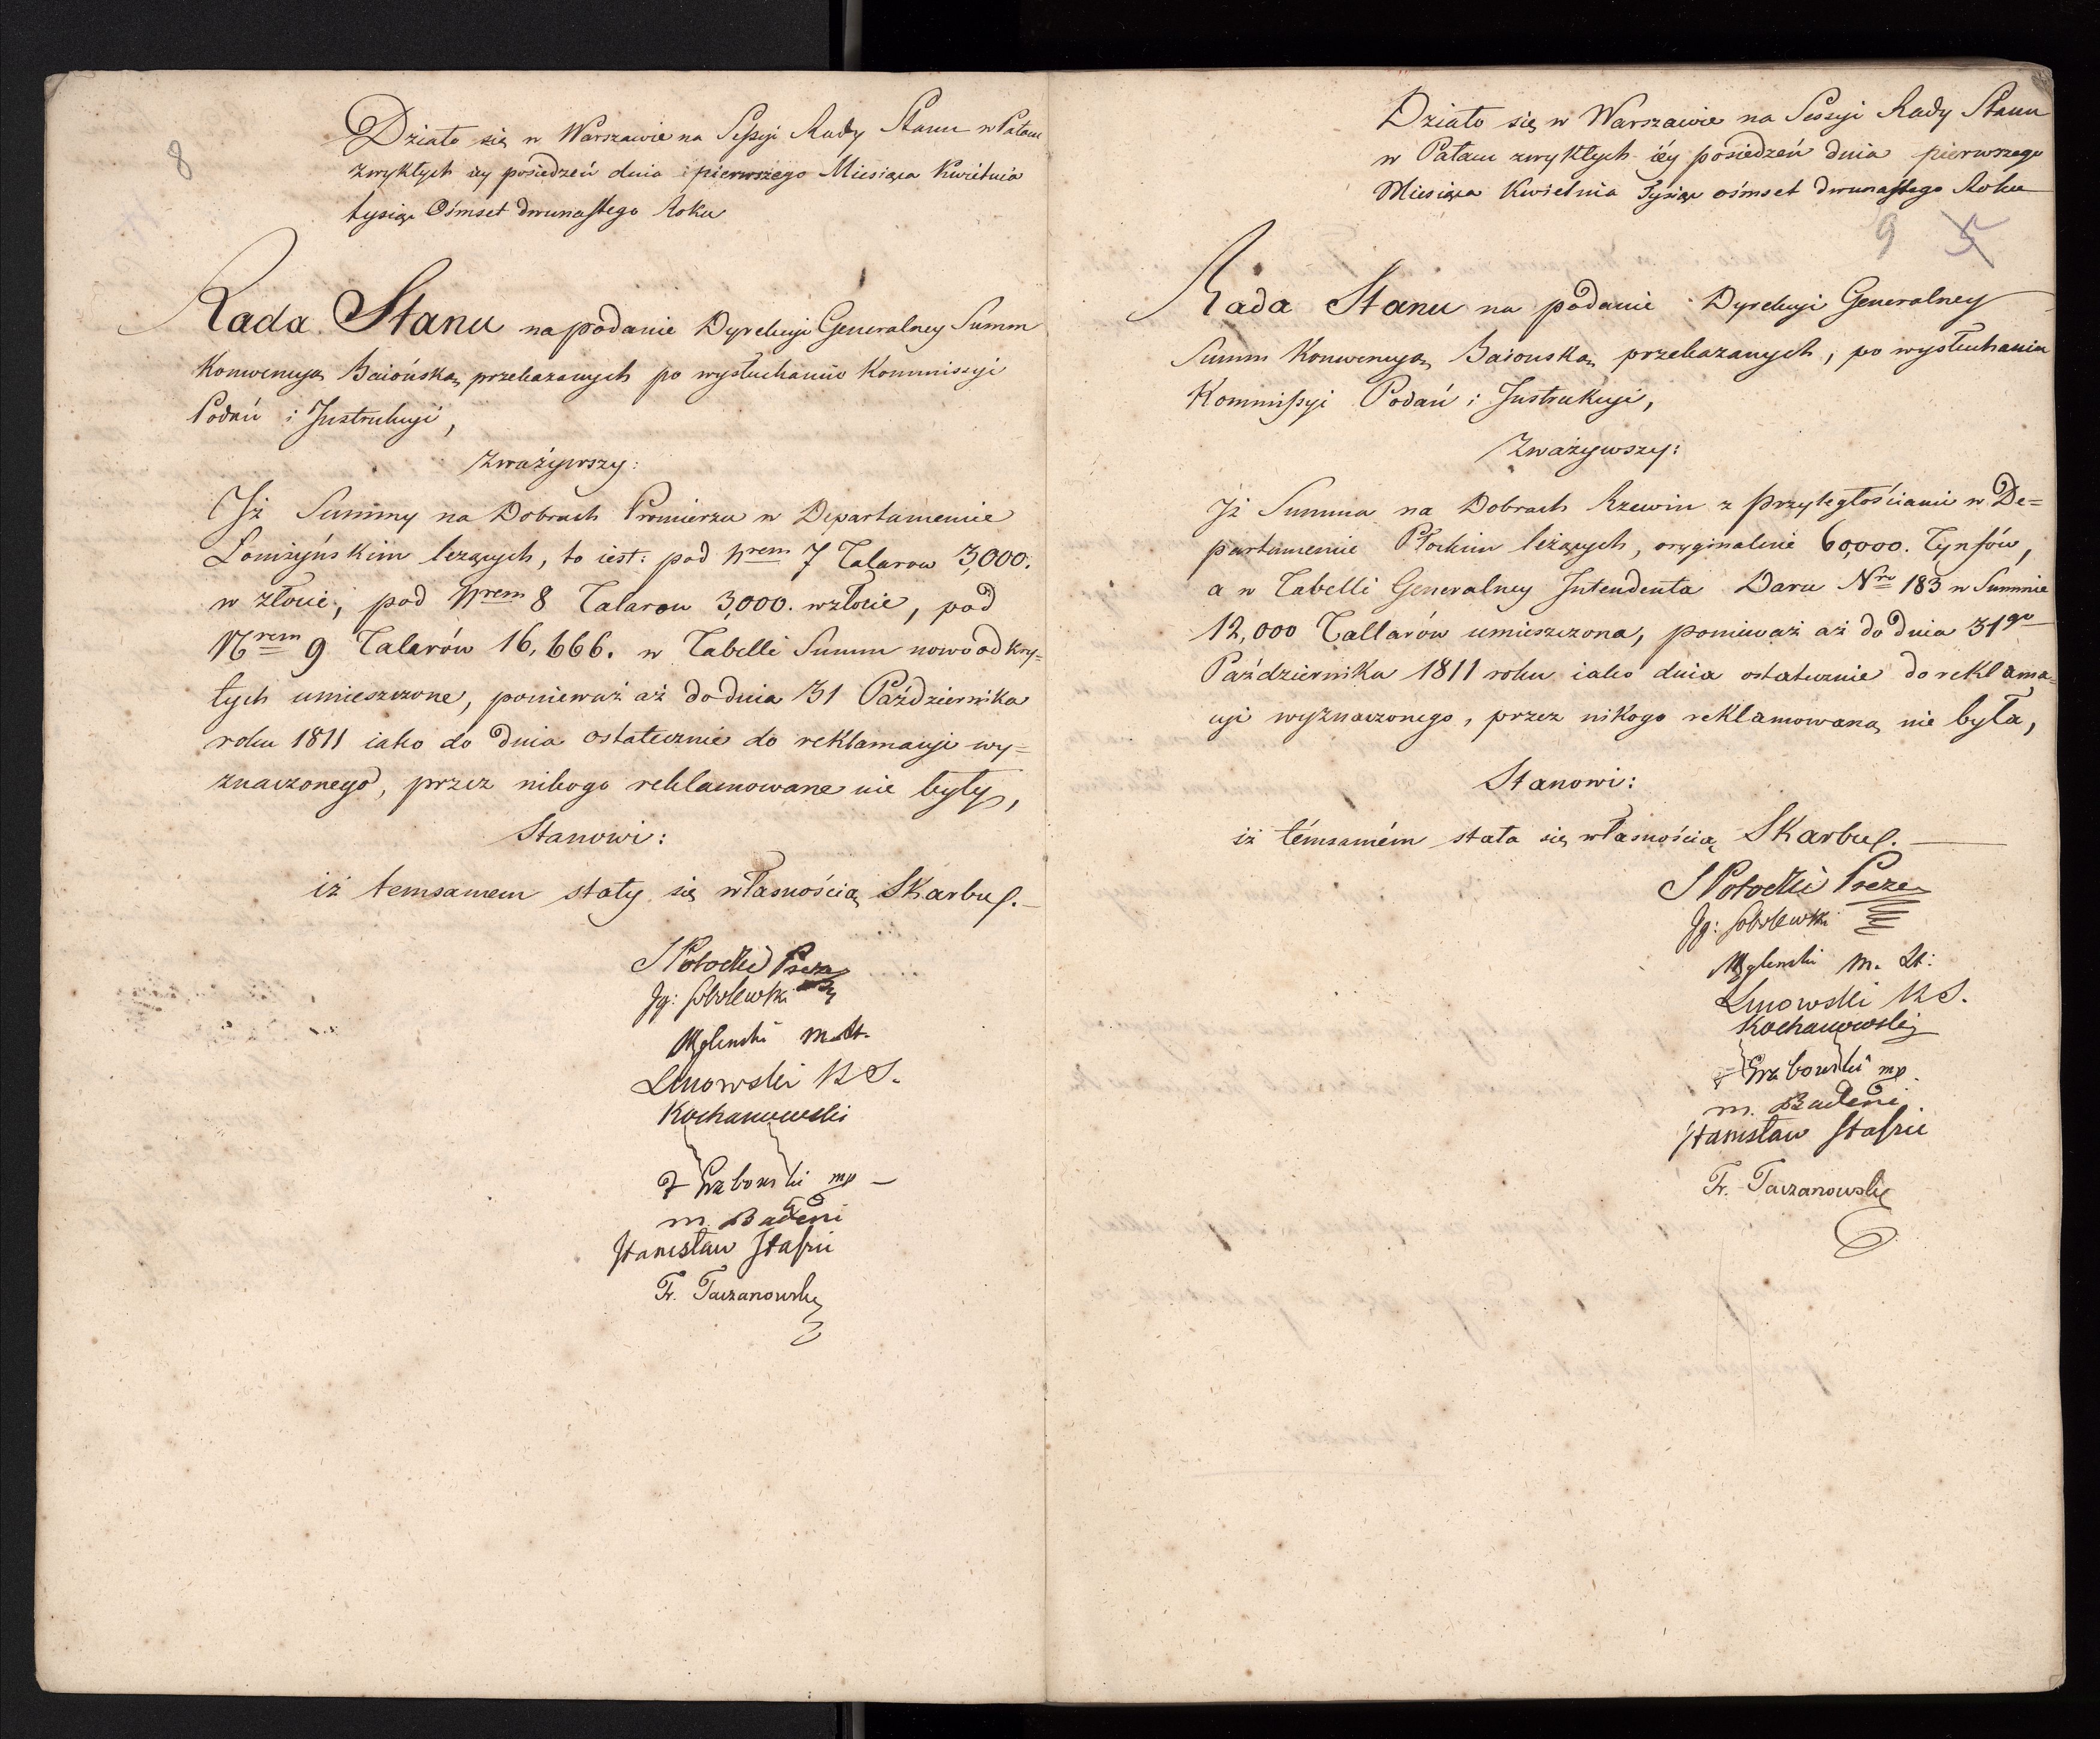 8
Działo się w Warszawie na Sessyi Rady Stanu w Pałacu
zwykłych iey posiedzeń dnia pierwszego Miesiąca Kwietnia
tysiąc Ośmset dwunastego Roku
Rada Stanu na podanie Dyrekcyi Generalney Summ
Konwencyą Baiońską przekazanych po wysłuchaniu Kommissyi
Podań i Instrukcyi,
zważywszy:
Iż Summy na Dobrach Promierzu w Departamencie
Łomżyńskim leżących, to iest: pod Nrem 7 Talarow 3,000.
w złocie, pod Nrem 8 Talarow 3,000. w złocie, pod
Nrem 9 Talarów 16,666. w Tabelli Summ nowo odkry=
tych umieszczone, ponieważ aż do dnia 31 Października
roku 1811 iako do dnia ostatecznie do reklamacyi wy=
znaczonego, przez nikogo reklamowane nie były,
Stanowi:
iż temsamem stały się własnością Skarbu.
S Potocki Prezes
Ig: Sobolewski
Węgleński M. Sk.
Linowski R S.
Kochanowski
F Grabowski mp
M. Badeni
Stanisław Staszic
Fr. Taczanowski
Działo się w Warszawie na Sessyi Rady Stanu
w Pałacu zwykłych iéy posiedzeń dnia pierwszego
Miesiąca Kwietnia Tysiąc ośmset dwunastego Roku
9 5
Rada Stanu na podanie Dyrekcyi Generalney
Summ Konwencyą Baionską przekazanych, po wysłuchaniu
Kommissyi Podań i Instrukcyi,
Zważywszy:
Iż Summa na Dobrach Rzewin z przyległościami w De=
partamencie Płockim leżących, oryginalnie 60,000. Tynfów,
a w Tabelli Generalney Intendenta Daru Nro 183 w Summie
12,000 Tallarów umieszczona, ponieważ aż do dnia 31go
Października 1811 roku iako dnia ostatecznie do reklama=
cyi wyznaczonego, przez nikogo reklamowaną nie była,
Stanowi:
iż témsamém stała się własnością Skarbu.
S Potocki Prezes
Ig: Sobolewski
Węgleński M. Sk:
Linowski R S.
Kochanowski
F Grabowski mp.
M. Badeni
Stanisław Staszic
Fr. Taczanowski